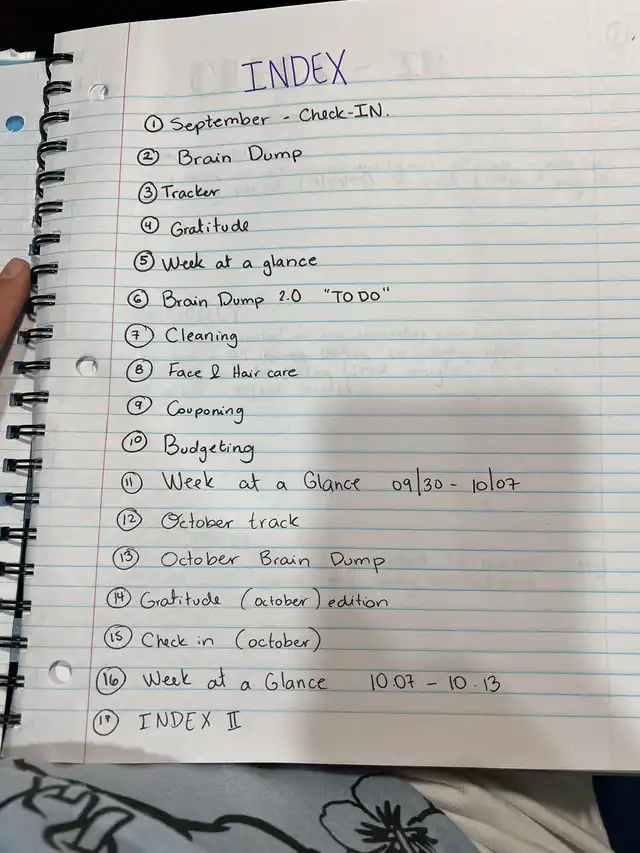 INDEX
① September - Check-IN.
② Brain Dump
③ Tracker
④ Gratitude
⑤ Week at a glance
⑥ Brain Dump 2.0 "TO DO"
⑦ Cleaning
⑧ Face & Hair care
⑨ Couponing
⑩ Budgeting
⑪ Week at a Glance 09/30 - 10/07
⑫ October track
⑬ October Brain Dump
⑭ Gratitude (october) edition
⑮ Check in (october)
⑯ Week at a Glance 10.07 - 10.13
⑰ INDEX II